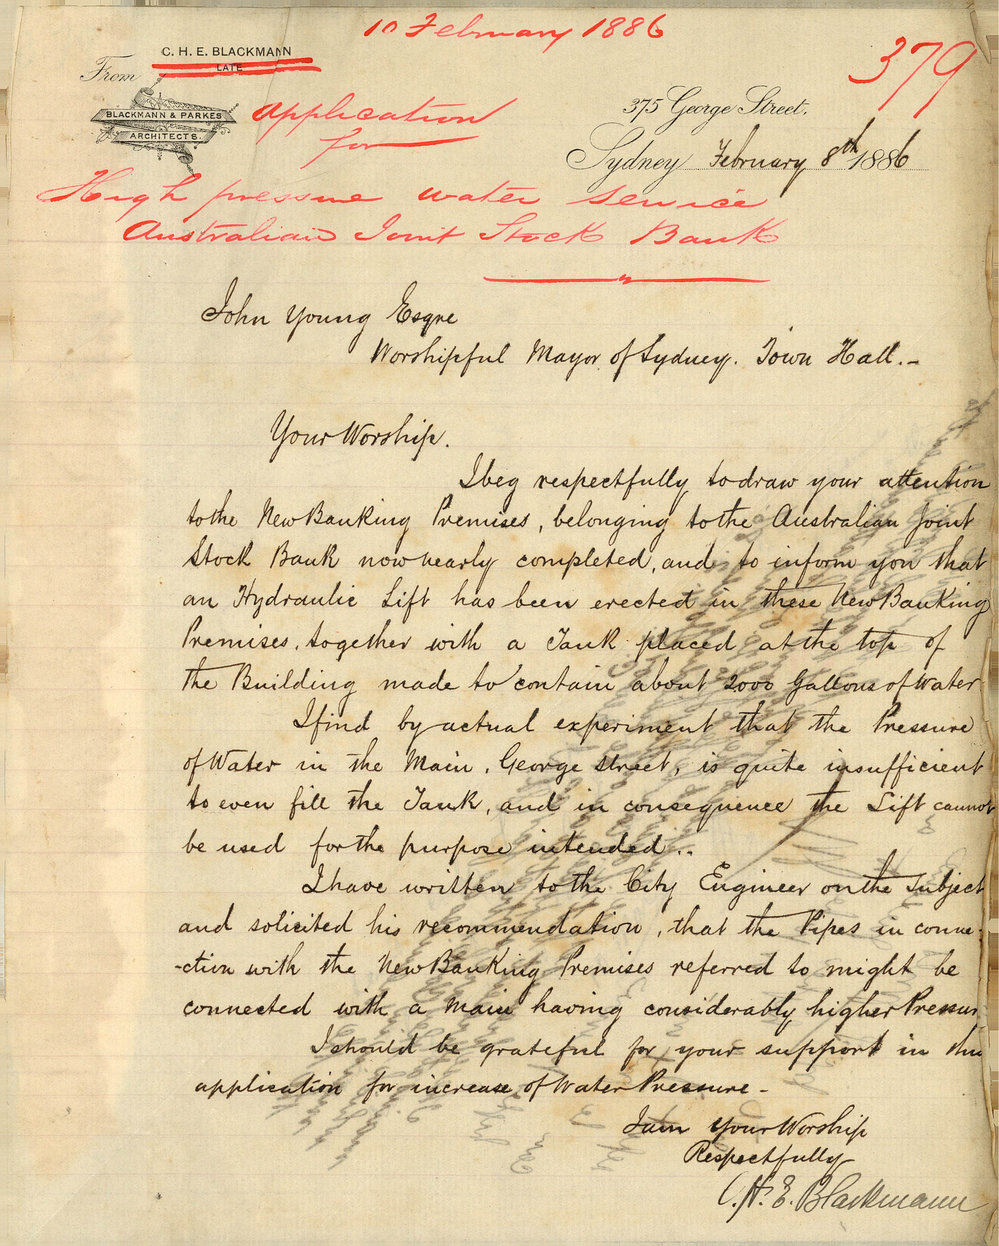 10 February 1886
379
From
C. H. E. BLACKMANN
LATE
BLACKMANN & PARKES
ARCHITECTS.
Application
for
High pressure water service
Australian Joint Stock Bank
375 George Street.
Sydney February 8th 1886
John Young Esqre
Worshipful Mayor of Sydney. Town Hall.-
Your Worship.
I beg respectfully to draw your attention
to the New Banking Premises, belonging to the Australian Joint
Stock Bank now nearly completed, and to inform you that
an Hydraulic Lift has been erected in these New Banking
Premises, together with a Tank placed at the top of
the Building made to contain about 2000 Gallons of Water
I find by actual experiment that the Pressure
of Water in the Main, George Street, is quite insufficient
to even fill the Tank, and in consequence the Lift cannot
be used for the purpose intended..
I have written to the City Engineer on the Subject
and solicited his recommendation, that the Pipes in conne-
-ction with the New Banking Premises referred to might be
connected with a Main having considerably higher Pressure
I should be grateful for your support in this
application for increase of Water Pressure -
I am Your Worship
Respectfully
C. H. E. Blackmann